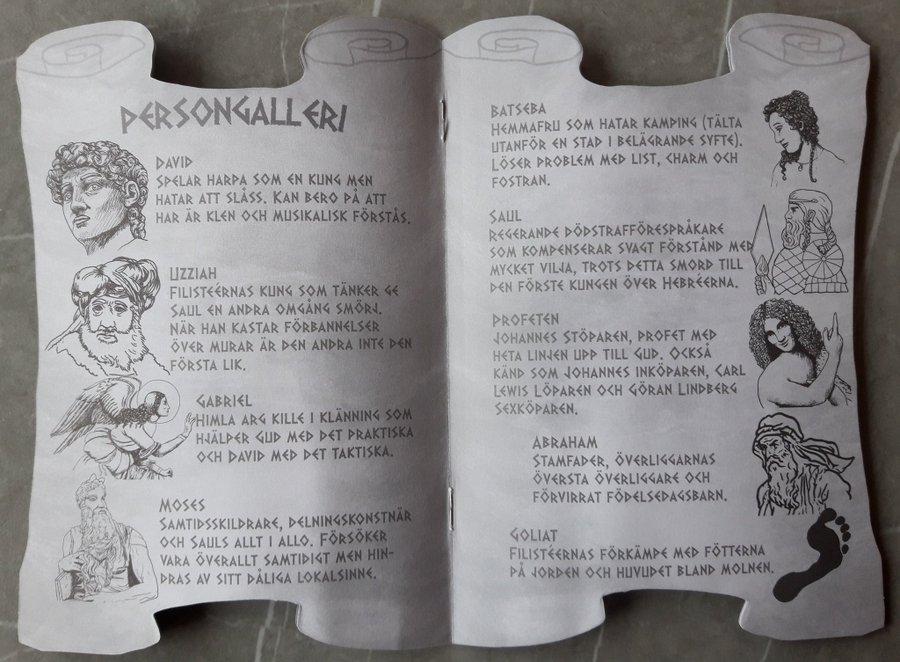 PERSONGALLERI
DAVID
SPELAR HARPA SOM EN KUNG MEN
HATAR ATT SLÅSS. KAN BERO PÅ ATT
HAR ÄR KLEN OCH MUSIKALISK FÖRSTÅS.
UZZIAH
FILISTEÉRNAS KUNG SOM TÄNKER GE
SAUL EN ANDRA OMGÅNG SMÖRJ.
NÄR HAN KASTAR FÖRBANNELSER
ÖVER MURAR ÄR DEN ANDRA INTE DEN
FÖRSTA LIK.
GABRIEL
HIMLA ARG KILLE I KLÄNNING SOM
HJÄLPER GUD MED DET PRAKTISKA
OCH DAVID MED DET TAKTISKA.
MOSES
SAMTIDSSKILDRARE, DELNINGSKONSTNÄR
OCH SAULS ALLT I ALLO. FÖRSÖKER
VARA ÖVERALLT SAMTIDIGT MEN HIN-
DRAS AV SITT DÅLIGA LOKALSINNE.
BATSEBA
HEMMAFRU SOM HATAR KAMPING (TÄLTA
UTANFÖR EN STAD I BELÄGRANDE SYFTE).
LÖSER PROBLEM MED LIST, CHARM OCH
FOSTRAN.
SAUL
REGERANDE DÖDSTRAFFÖRESPRÅKARE
SOM KOMPENSERAR SVAGT FÖRSTÅND MED
MYCKET VILJA, TROTS DETTA SMORD TILL
DEN FÖRSTE KUNGEN ÖVER HEBRÉERNA.
PROFETEN
JOHANNES STÖPAREN, PROFET MED
HETA LINJEN UPP TILL GUD. OCKSÅ
KÄND SOM JOHANNES INKÖPAREN, CARL
LEWIS LÖPAREN OCH GÖRAN LINDBERG
SEXKÖPAREN.
ABRAHAM
STAMFADER, ÖVERLIGGARNAS
ÖVERSTA ÖVERLIGGARE OCH
FÖRVIRRAT FÖDELSEDAGSBARN.
GOLIAT
FILISTÉERNAS FÖRKÄMPE MED FÖTTERNA
PÅ JORDEN OCH HUVUDET BLAND MOLNEN.